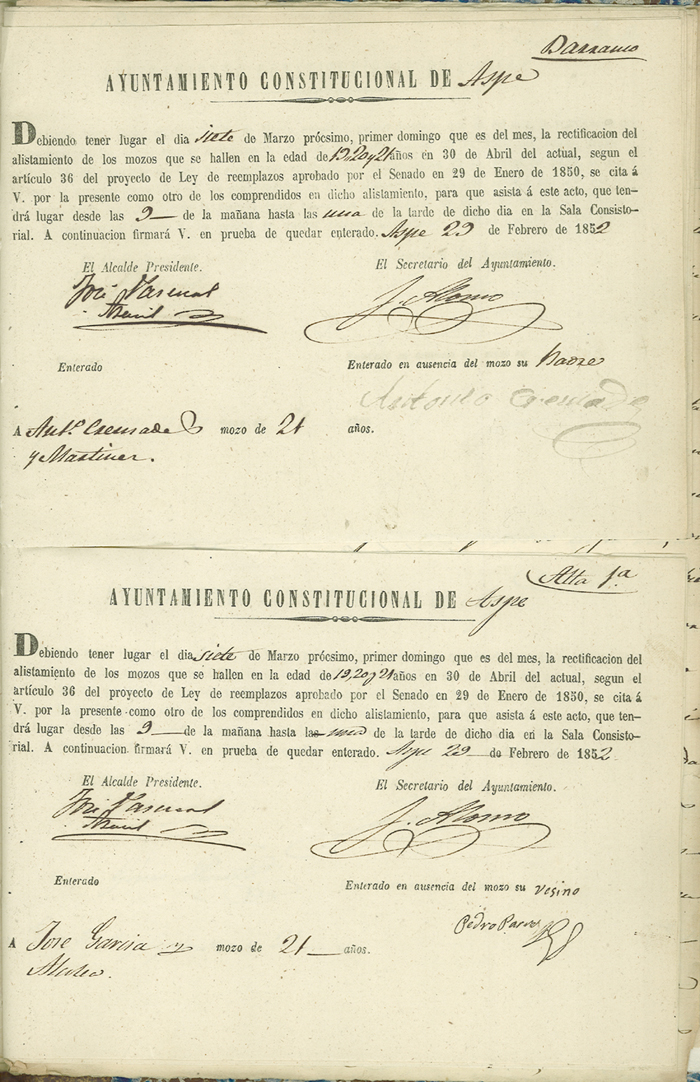 Barranco
AYUNTAMIENTO CONSTITUCIONAL DE Aspe
Debiendo tener lugar el dia siete de Marzo prócsimo, primer domingo que es del mes, la rectificacion del
alistamiento de los mozos que se hallen en la edad de 19, 20 y 21 años en 30 de Abril del actual, segun el
artículo 36 del proyecto de Ley de reemplazos aprobado por el Senado en 29 de Enero de 1850, se cita á
V. por la presente como otro de los comprendidos en dicho alistamiento, para que asista á este acto, que ten-
drá lugar desde las 9 de la mañana hasta las una de la tarde de dicho dia en la Sala Consisto-
rial. A continuacion firmará V. en prueba de quedar enterado. Aspe 29 de Febrero de 1852
El Alcalde Presidente. El Secretario del Ayuntamiento.
José Pascual J. Alonso
Enterado Enterado en ausencia del mozo su Padre
Antonio Cremades
A Ant.º Cremades mozo de 21 años.
y Martinez.
Alta 1.a
AYUNTAMIENTO CONSTITUCIONAL DE Aspe
Debiendo tener lugar el dia siete de Marzo prócsimo, primer domingo que es del mes, la rectificacion del
alistamiento de los mozos que se hallen en la edad de 19, 20 y 21 años en 30 de Abril del actual, segun el
artículo 36 del proyecto de Ley de reemplazos aprobado por el Senado en 29 de Enero de 1850, se cita á
V. por la presente como otro de los comprendidos en dicho alistamiento, para que asista á este acto, que ten-
drá lugar desde las 9 de la mañana hasta las una de la tarde de dicho dia en la Sala Consisto-
rial. A continuacion firmará V. en prueba de quedar enterado. Aspe 29 de Febrero de 1852
El Alcalde Presidente. El Secretario del Ayuntamiento.
José Pascual J. Alonso
Enterado Enterado en ausencia del mozo su vesino
Pedro
A Jose Garcia y mozo de 21 años.
Mateo.